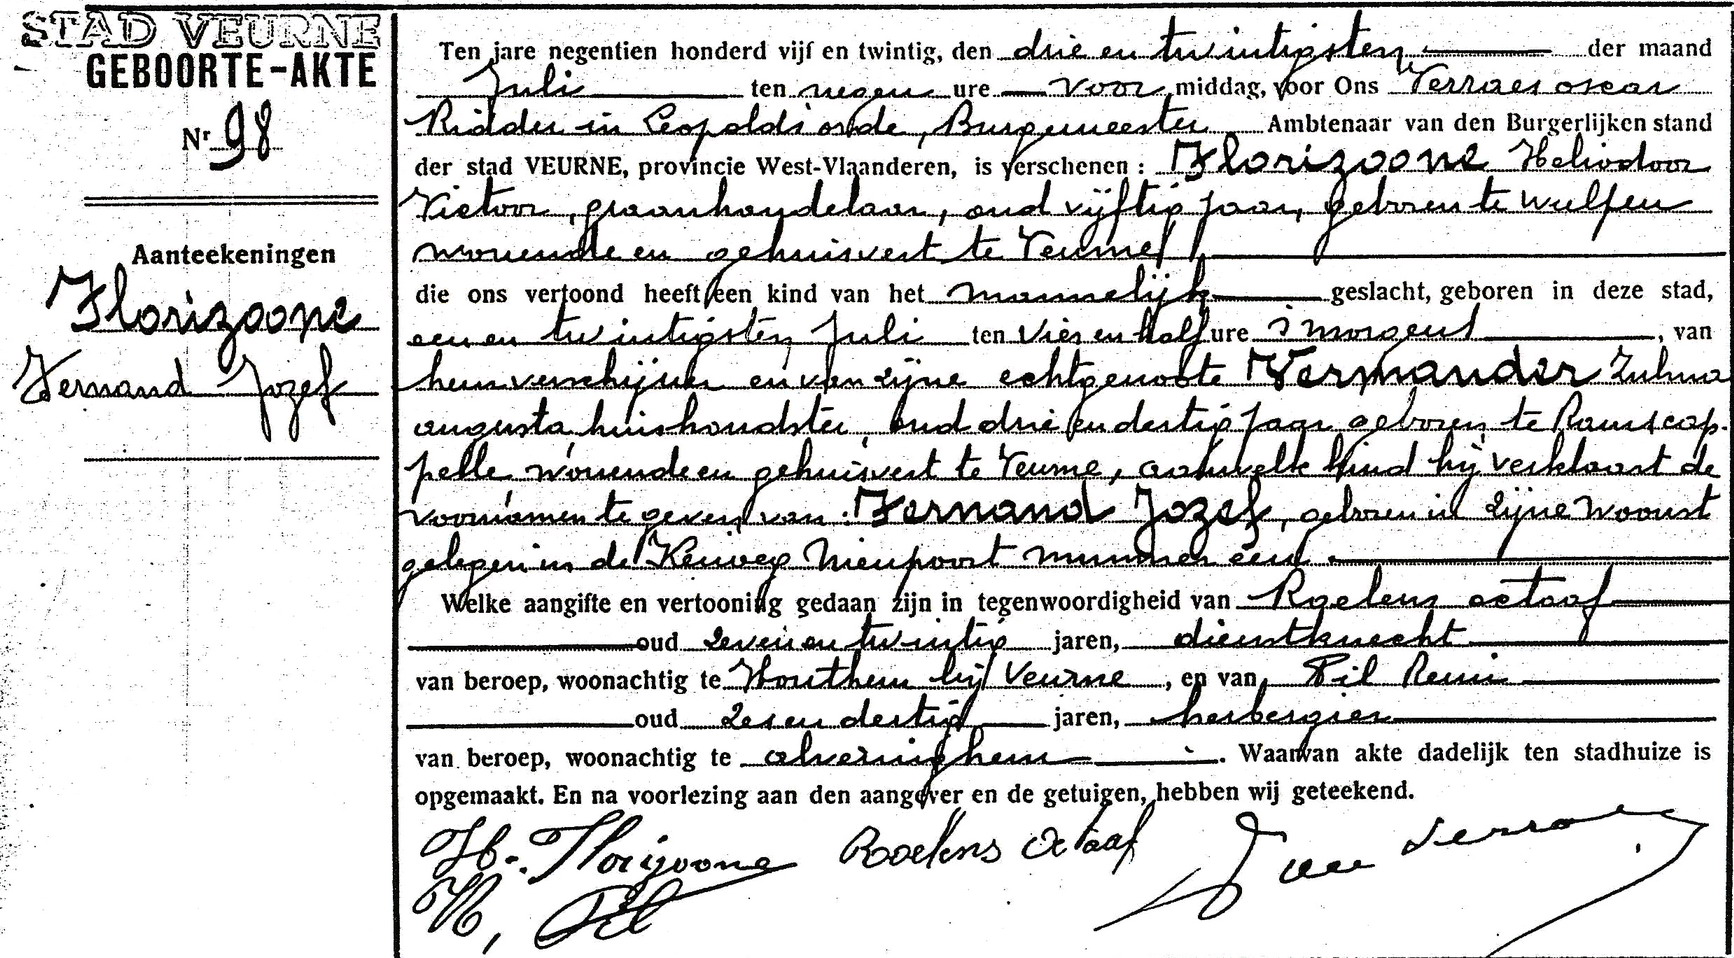 STAD VEURNE
GEBOORTE-AKTE
Nr 98
Aanteekeningen
Florizoone
Fernand Jozef
Ten jare negentien honderd vijf en twintig, den drie en twintigsten der maand
Juli ten negen ure voor middag, voor Ons Verraes oscar
Ridder in Leopoldsorde, Burgemeester Ambtenaar van den Burgerlijken stand
der stad VEURNE, provincie West-Vlaanderen, is verschenen : Florizoone Heliodoor
Victoor, graanhandelaar, oud vijftig jaar, geboren te Wulpen
wonende en gehuisvest te Veurne,
die ons vertoond heeft een kind van het mannelijk geslacht, geboren in deze stad,
een en twintigsten Juli ten vier en half ure 's morgens, van
hem verschijner en van zijne echtgenoote Vermander Zulma
augusta, huishoudster, oud drie en dertig jaar geboren te Ramscap-
pelle wonende en gehuisvest te Veurne, aan welk kind hij verklaart de
voornamen te geven van : Fernand Jozef, geboren in zijne woonst
gelegen in de Nieupoort nummer een.
Welke aangifte en vertooning gedaan zijn in tegenwoordigheid van Roelens octaaf
oud zeven en twintig jaren, dienstknecht
van beroep, woonachtig te Houthem bij Veurne, en van Pil Remi
oud zes en dertig jaren, herbergier
van beroep, woonachtig te alveringhem. Waarvan akte dadelijk ten stadhuize is
opgemaakt. En na voorlezing aan den aangever en de getuigen, hebben wij geteekend.
H. Florizoone Roelens Octaaf
Pil